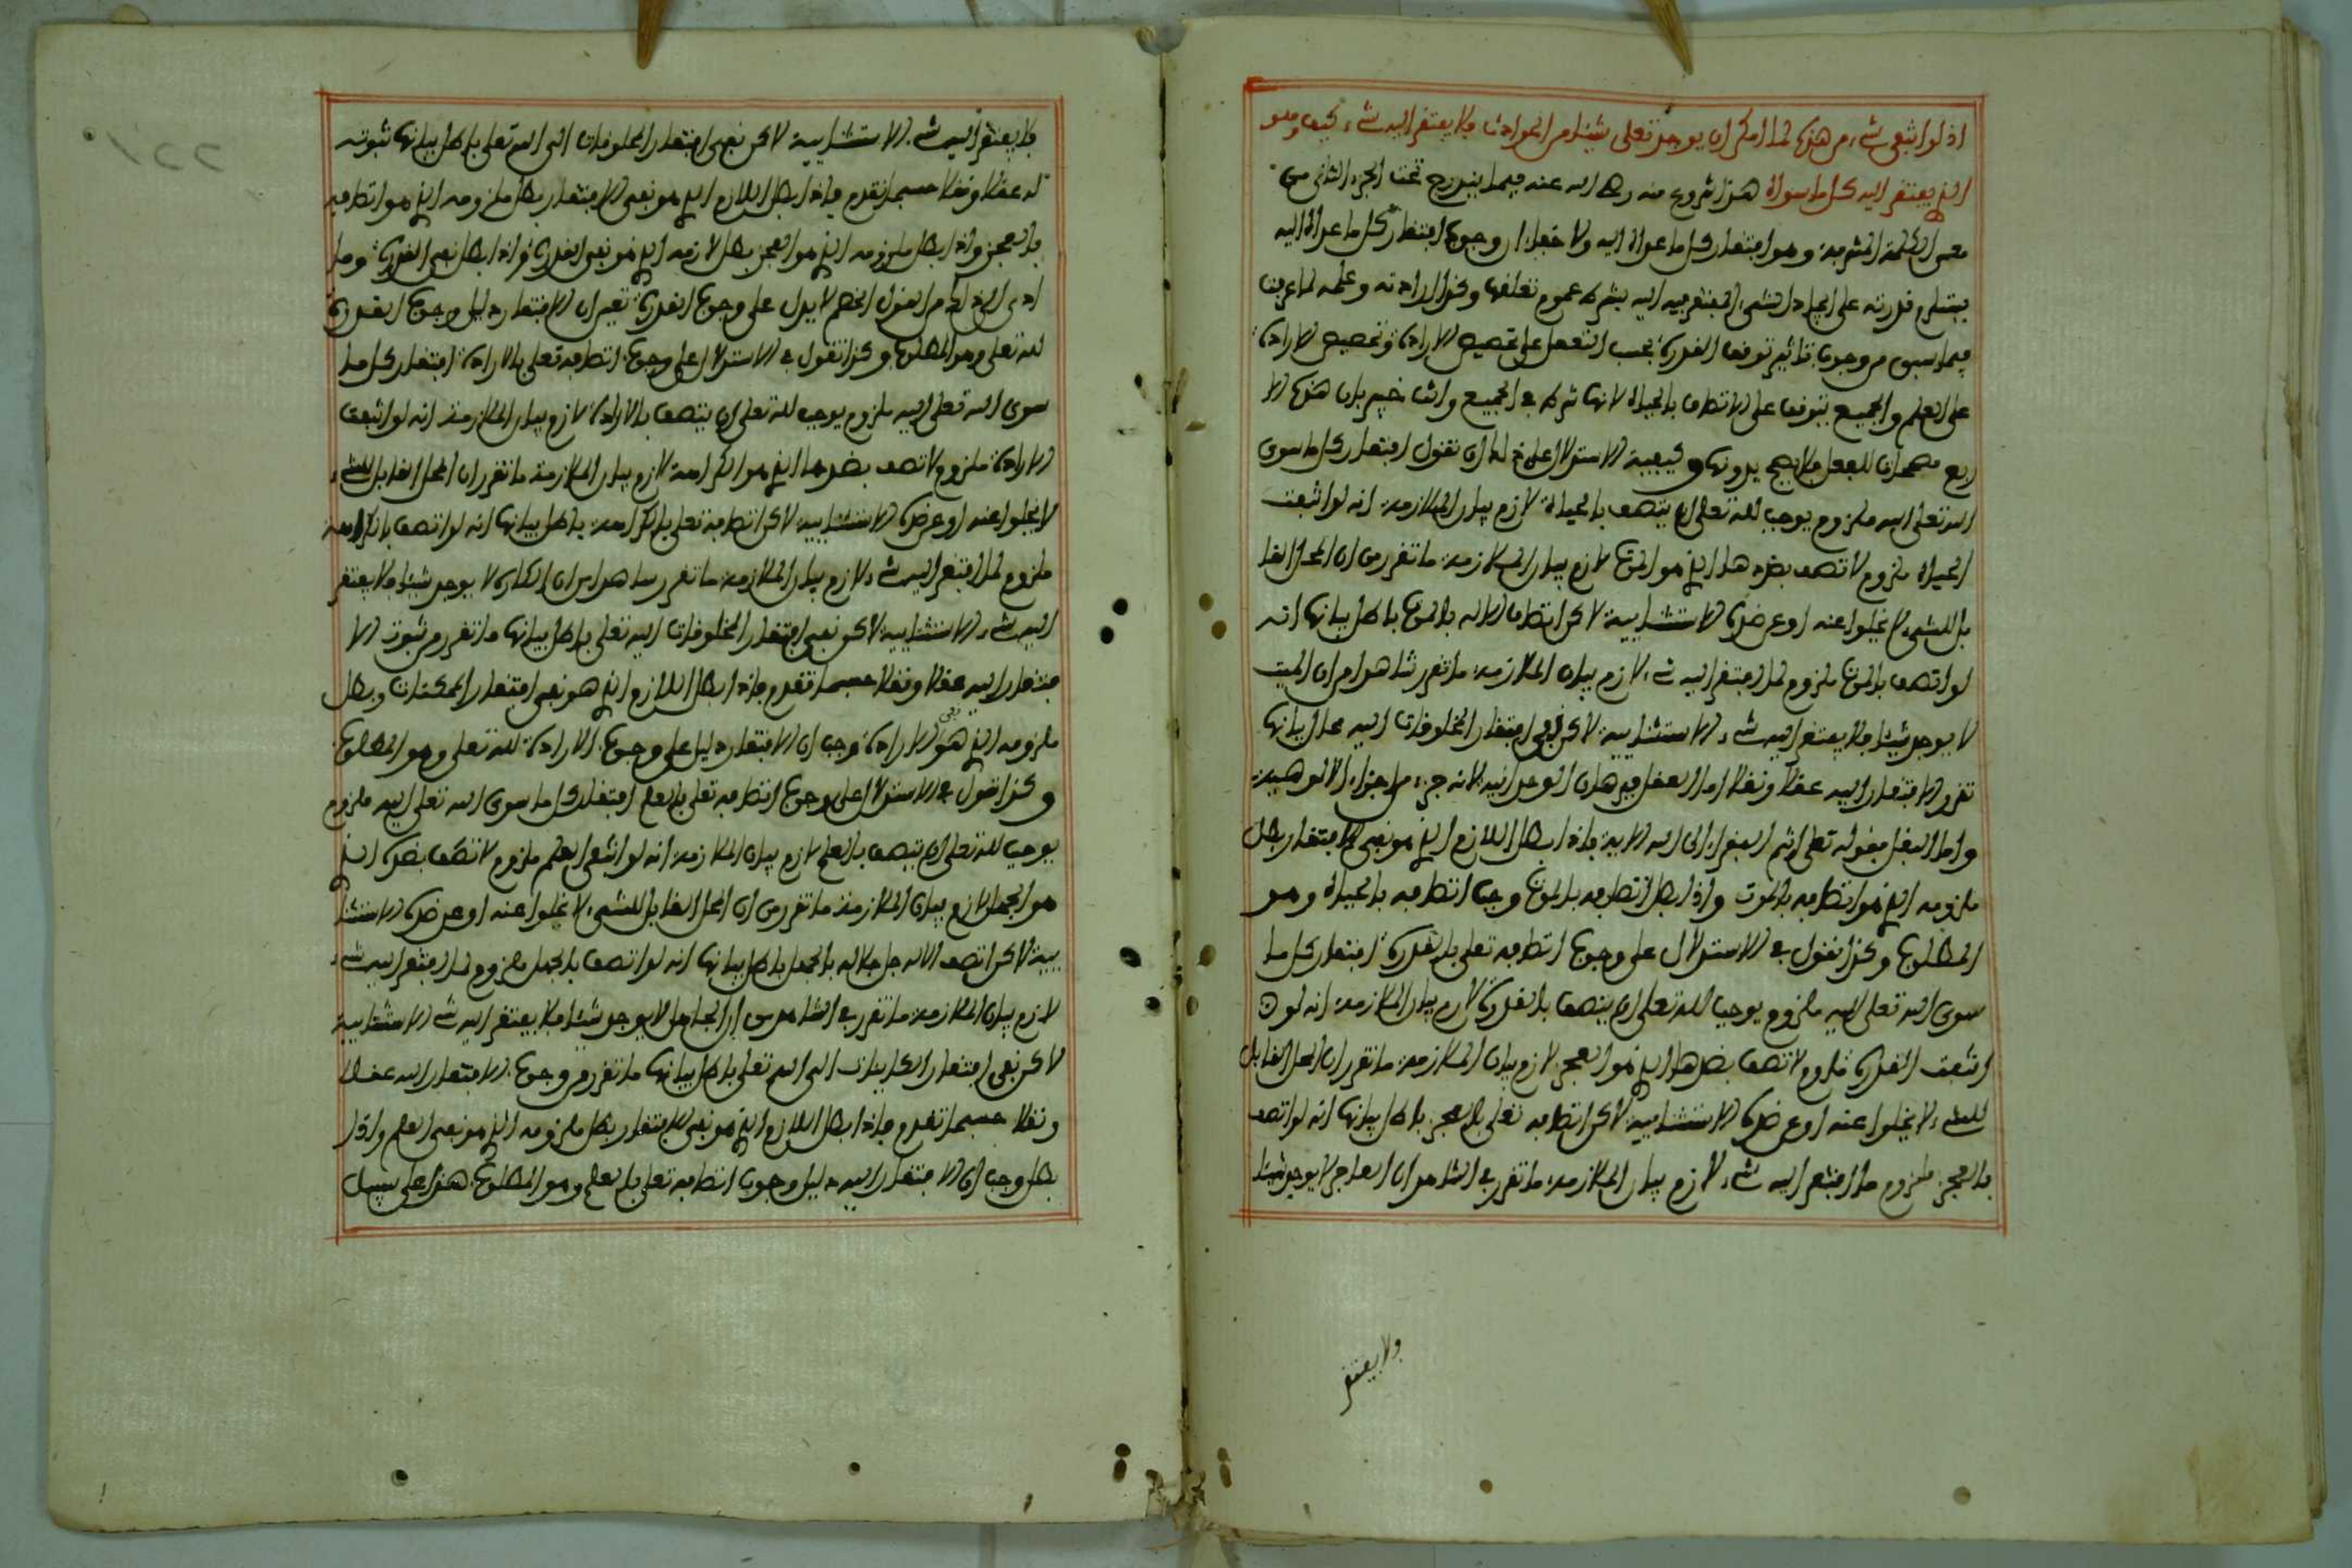 اذ لو انتفى شيء من هذه لما امكن ان يوجد تعلى شيئا من الحوادث فلا يفتقر اليه شيء كيف وهو
الذي يفتقر اليه كل ما سواه هذا شروع منه رضي الله عنه فيما يندرج تحت الجزء الثاني من
معنى الكلمة المشرفة وهو افتقار كل ما عداه اليه ولا خفاء ان وجوب افتقار كل ما عداه اليه
يستلزم قدرته على ايجاد الشيء المفتقر فيه اليه بشرط عموم تعلقها وكذا ارادته وعلمه لما عرفت
فيما سبق من وجوب تاثير توقف القدرة بحسب التعقل على تخصيص الارادة وتخصيص الارادة
على العلم والجميع يتوقف على الاتصاف بالحياة لانها شرط في الجميع وانت خبير بان هذه الا
ربع مصححات للفعل فلا يصح بدونها وكيفية الاستدلال على ذلك ان تقول افتقار كل ما سوى
الله تعلى اليه ملزوم يوجب لله تعلى ان يتصف بالحياة لازم بيان الملازمة انه لو انتفت
الحياة ملزوم لاتصف بضدها الذي هو الموت لازم بيان الملازمة ما تقرر من ان المحل القا
بل للشيء لا يخلوا عنه او عن ضده الاستثنايية لاكن اتصاف الاله بالموت باطل بيانها انه
لو اتصف بالموت ملزوم لما افتقر اليه شيء لازم بيان الملازمة ما تقرر شاهدا من ان الميت
لا يوجد شيئا فلا يفتقر اليه شيء الاستثنايية لاكن نفي افتقار المخلوقات اليه محال بيانها
تقرر الافتقار اليه عقلا ونقلا اما العقل فبرهان الوحدانية لانه جزء من اجزاء الالوهية
واما النقل فقوله تعلى انتم الفقراء الى الله الاية فاذا بطل اللازم الذي هو نفي الافتقار بطل
ملزومه الذي هو اتصافه بالموت واذا بطل اتصافه بالموت وجب اتصافه بالحياة وهو
المطلوب وكذا تقول في الاستدلال على وجوب اتصافه تعلى بالقدرة افتقار كل ما
سوى الله تعلى اليه ملزوم يوجب لله تعلى ان يتصف بالقدرة لازم بيان الملازمة انه لو
انتفت القدرة ملزوم لاتصف بضدها الذي هو العجز لازم بيان الملازمة ما تقرر ان المحل القابل
للشيء لا يخلوا عنه او عن ضده الاستثنايية لاكن اتصافه تعلى بالعجز باطل بيانها انه لو اتصف
بالعجز ملزوم ما افتقر اليه شيء لازم بيان الملازمة ما تقرر في الشاهد ان العاجز لا يوجد شيئا
ولا يفتقر
فلا يفتقر اليه شيء الاستثنايية لاكن نفي افتقار المخلوقات الى الله تعلى باطل بيانها ثبوته
له عقلا ونقلا حسبما تقدم فاذا بطل اللازم الذي هو نفي الافتقار بطل ملزومه الذي هو اتصافه
بالعجز واذا بطل ملزومه الذي هو العجز بطل لازمه الذي هو نفي القدرة واذا بطل نفي القدرة وما
ادى الى ذلك من القول الخصم لا يدل على وجوب القدرة تعين ان الافتقار دليل وجوب القدرة
لله تعلى وهو المطلوب وكذا تقول في الاستدلال على وجوب اتصافه تعلى بالارادة افتقار كل ما
سوى الله تعلى اليه ملزوم يوجب لله تعلى ان يتصف بالارادة لازم بيان الملازمة انه لو انتفت
الارادة ملزوم لاتصف بضدها الذي هو الكراهة لازم بيان الملازمة ما تقرر ان المحل القابل للشيء
لا يخلوا عنه او عن ضده الاستثنايية لاكن اتصافه تعلى بالكراهة باطل بيانها انه لو اتصف بالكراهة
ملزوم لما افتقر اليه شيء لازم بيان الملازمة ما تقرر شاهدا من ان الكاره لا يوجد شيئا فلا يفتقر
اليه شيء الاستثنايية لاكن نفي افتقار المخلوقات اليه تعلى باطل بيانها ما تقرر من ثبوت الا
فتقار اليه عقلا ونقلا حسبما تقدم فاذا بطل اللازم الذي هو نفي افتقار الممكنات وبطل
ملزومه الذي هو نفي الارادة وجب ان الافتقار دليل على وجوب الارادة لله تعلى وهو المطلوب
وكذا تقول في الاستدلال على وجوب اتصافه تعلى بالعلم افتقار كل ما سوى الله تعلى اليه ملزوم
يوجب لله تعلى ان يتصف بالعلم لازم بيان الملازمة انه لو انتفى العلم ملزوم لاتصف بضده الذي
هو الجهل لازم بيان الملازمة ما تقرر من ان المحل القابل للشيء لا يخلوا عنه او عن ضده الاستثنا
يية لاكن اتصف الاله جل جلاله بالجهل باطل بيانها انه لو اتصف بالجهل ملزوم لما افتقر اليه شيء
لازم بيان الملازمة ما تقرر في الشاهد من ان الجاهل لا يوجد شيئا فلا يفتقر اليه شيء الاستثنايية
لاكن نفي افتقار الكاينات الى الله تعلى باطل بيانها ما تقرر من وجوب الافتقار اليه عقلا
ونقلا حسبما تقدم فاذا بطل اللازم الذي هو نفي الافتقار بطل ملزومه الذي هو نفي العلم واذا
بطل وجب ان الافتقار اليه دليل وجوب اتصافه تعلى بالعلم وهو المطلوب هذا على سبيل